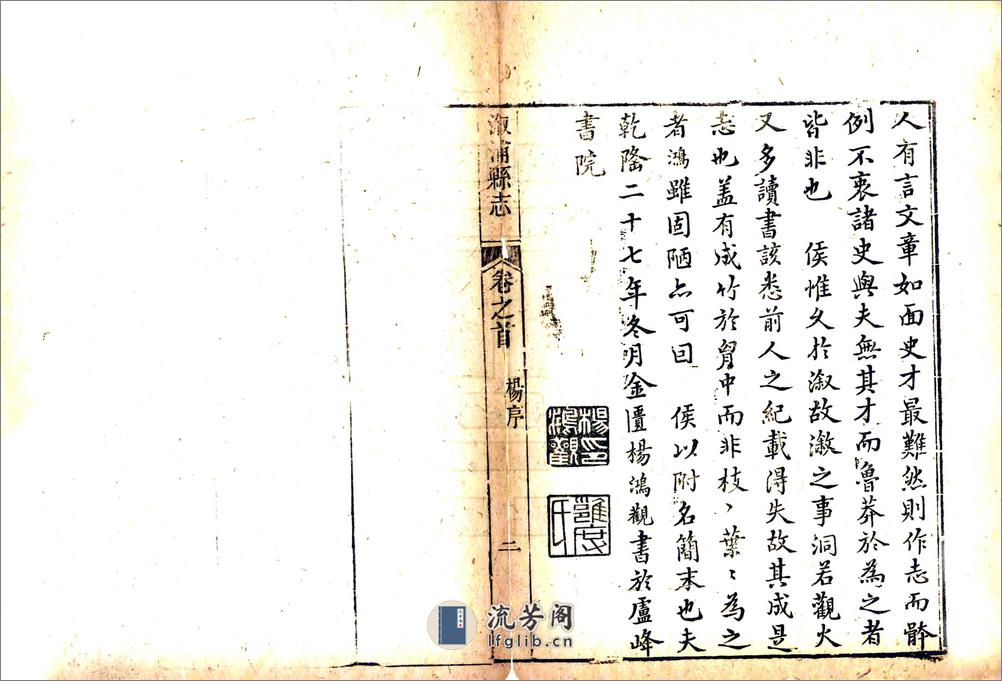 人有言文章如面史才最難然則作志而體
例不衷諸史與夫無其才而魯莽於為之者
皆非也　侯惟久於溆故溆之事洞若觀火
又多讀書該悉前人之紀載得失故其成是
志也盖有成竹於胷中而非枝〻葉〻為之
者鴻雖固陋亦可因　侯以附名簡末也夫
乾隆二十七年冬月金匱楊鴻觀書於盧峰
書院
楊印鴻觀
溆浦縣志
卷之首
楊序
二
流芳阁
lfglib.cn